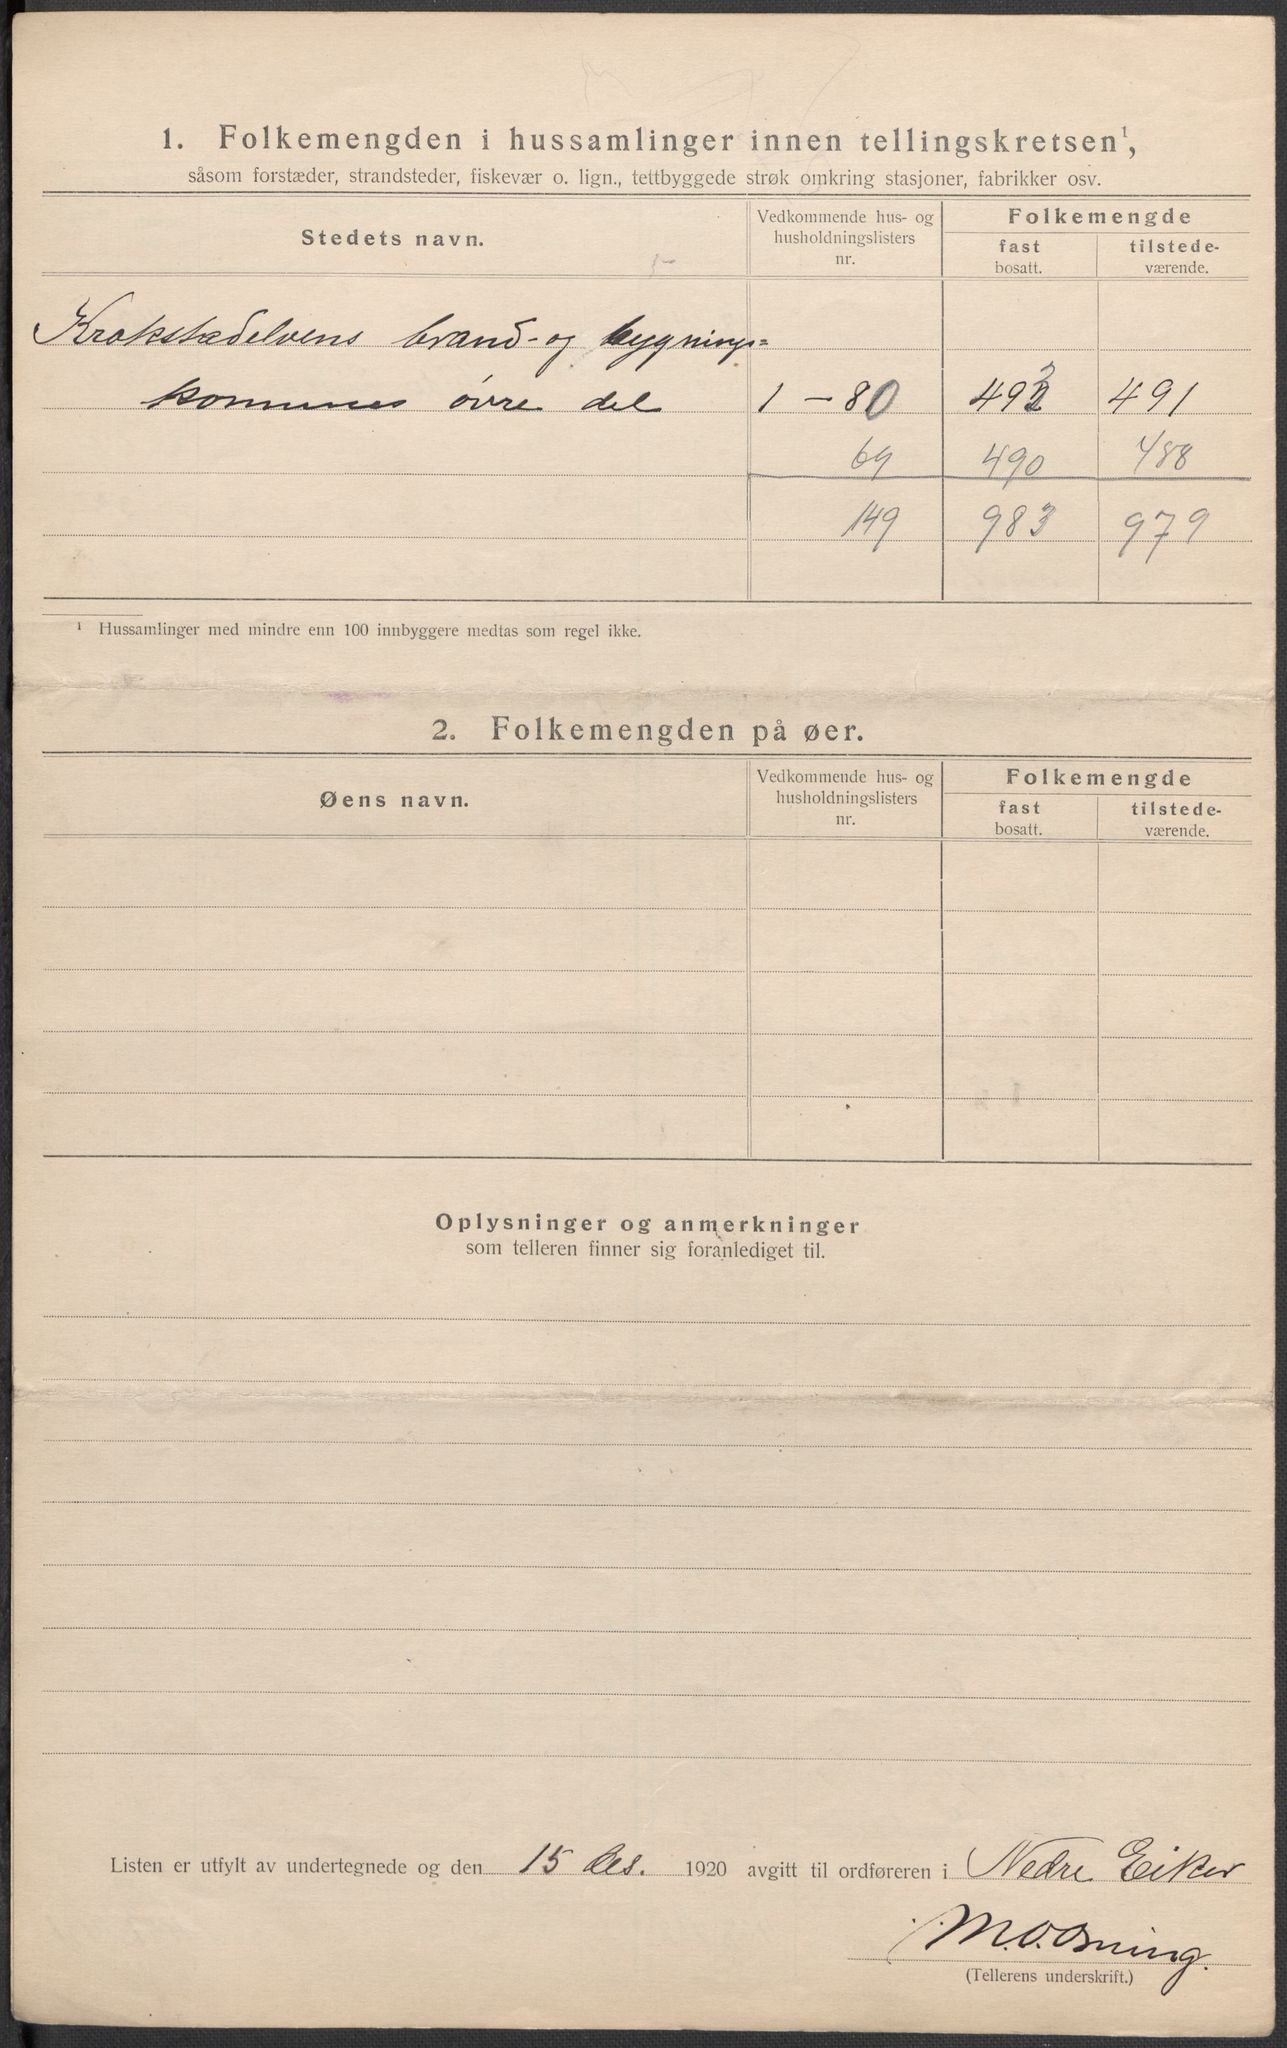 1. Folkemengden i hussamlinger innen tellingskretsen¹,
såsom forstæder, strandsteder, fiskevær o. lign., tettbyggede strøk omkring stasjoner, fabrikker osv.
Stedets navn.
Vedkommende hus- og
husholdningslisters
nr.
Folkemengde
fast
bosatt.
tilstede-
værende.
Krokstadelvens brand- og bygnings=
kommunes øvre del 1 – 80 493 491
69 490 488
149 983 979
¹ Hussamlinger med mindre enn 100 innbyggere medtas som regel ikke.
2. Folkemengden på øer.
Øens navn.
Vedkommende hus- og
husholdningslisters
nr.
Folkemengde
fast
bosatt.
tilstede-
værende.
Oplysninger og anmerkninger
som telleren finner sig foranlediget til.
Listen er utfylt av undertegnede og den 15 des. 1920 avgitt til ordføreren i Nedre Eiker
M.O.
(Tellerens underskrift.)